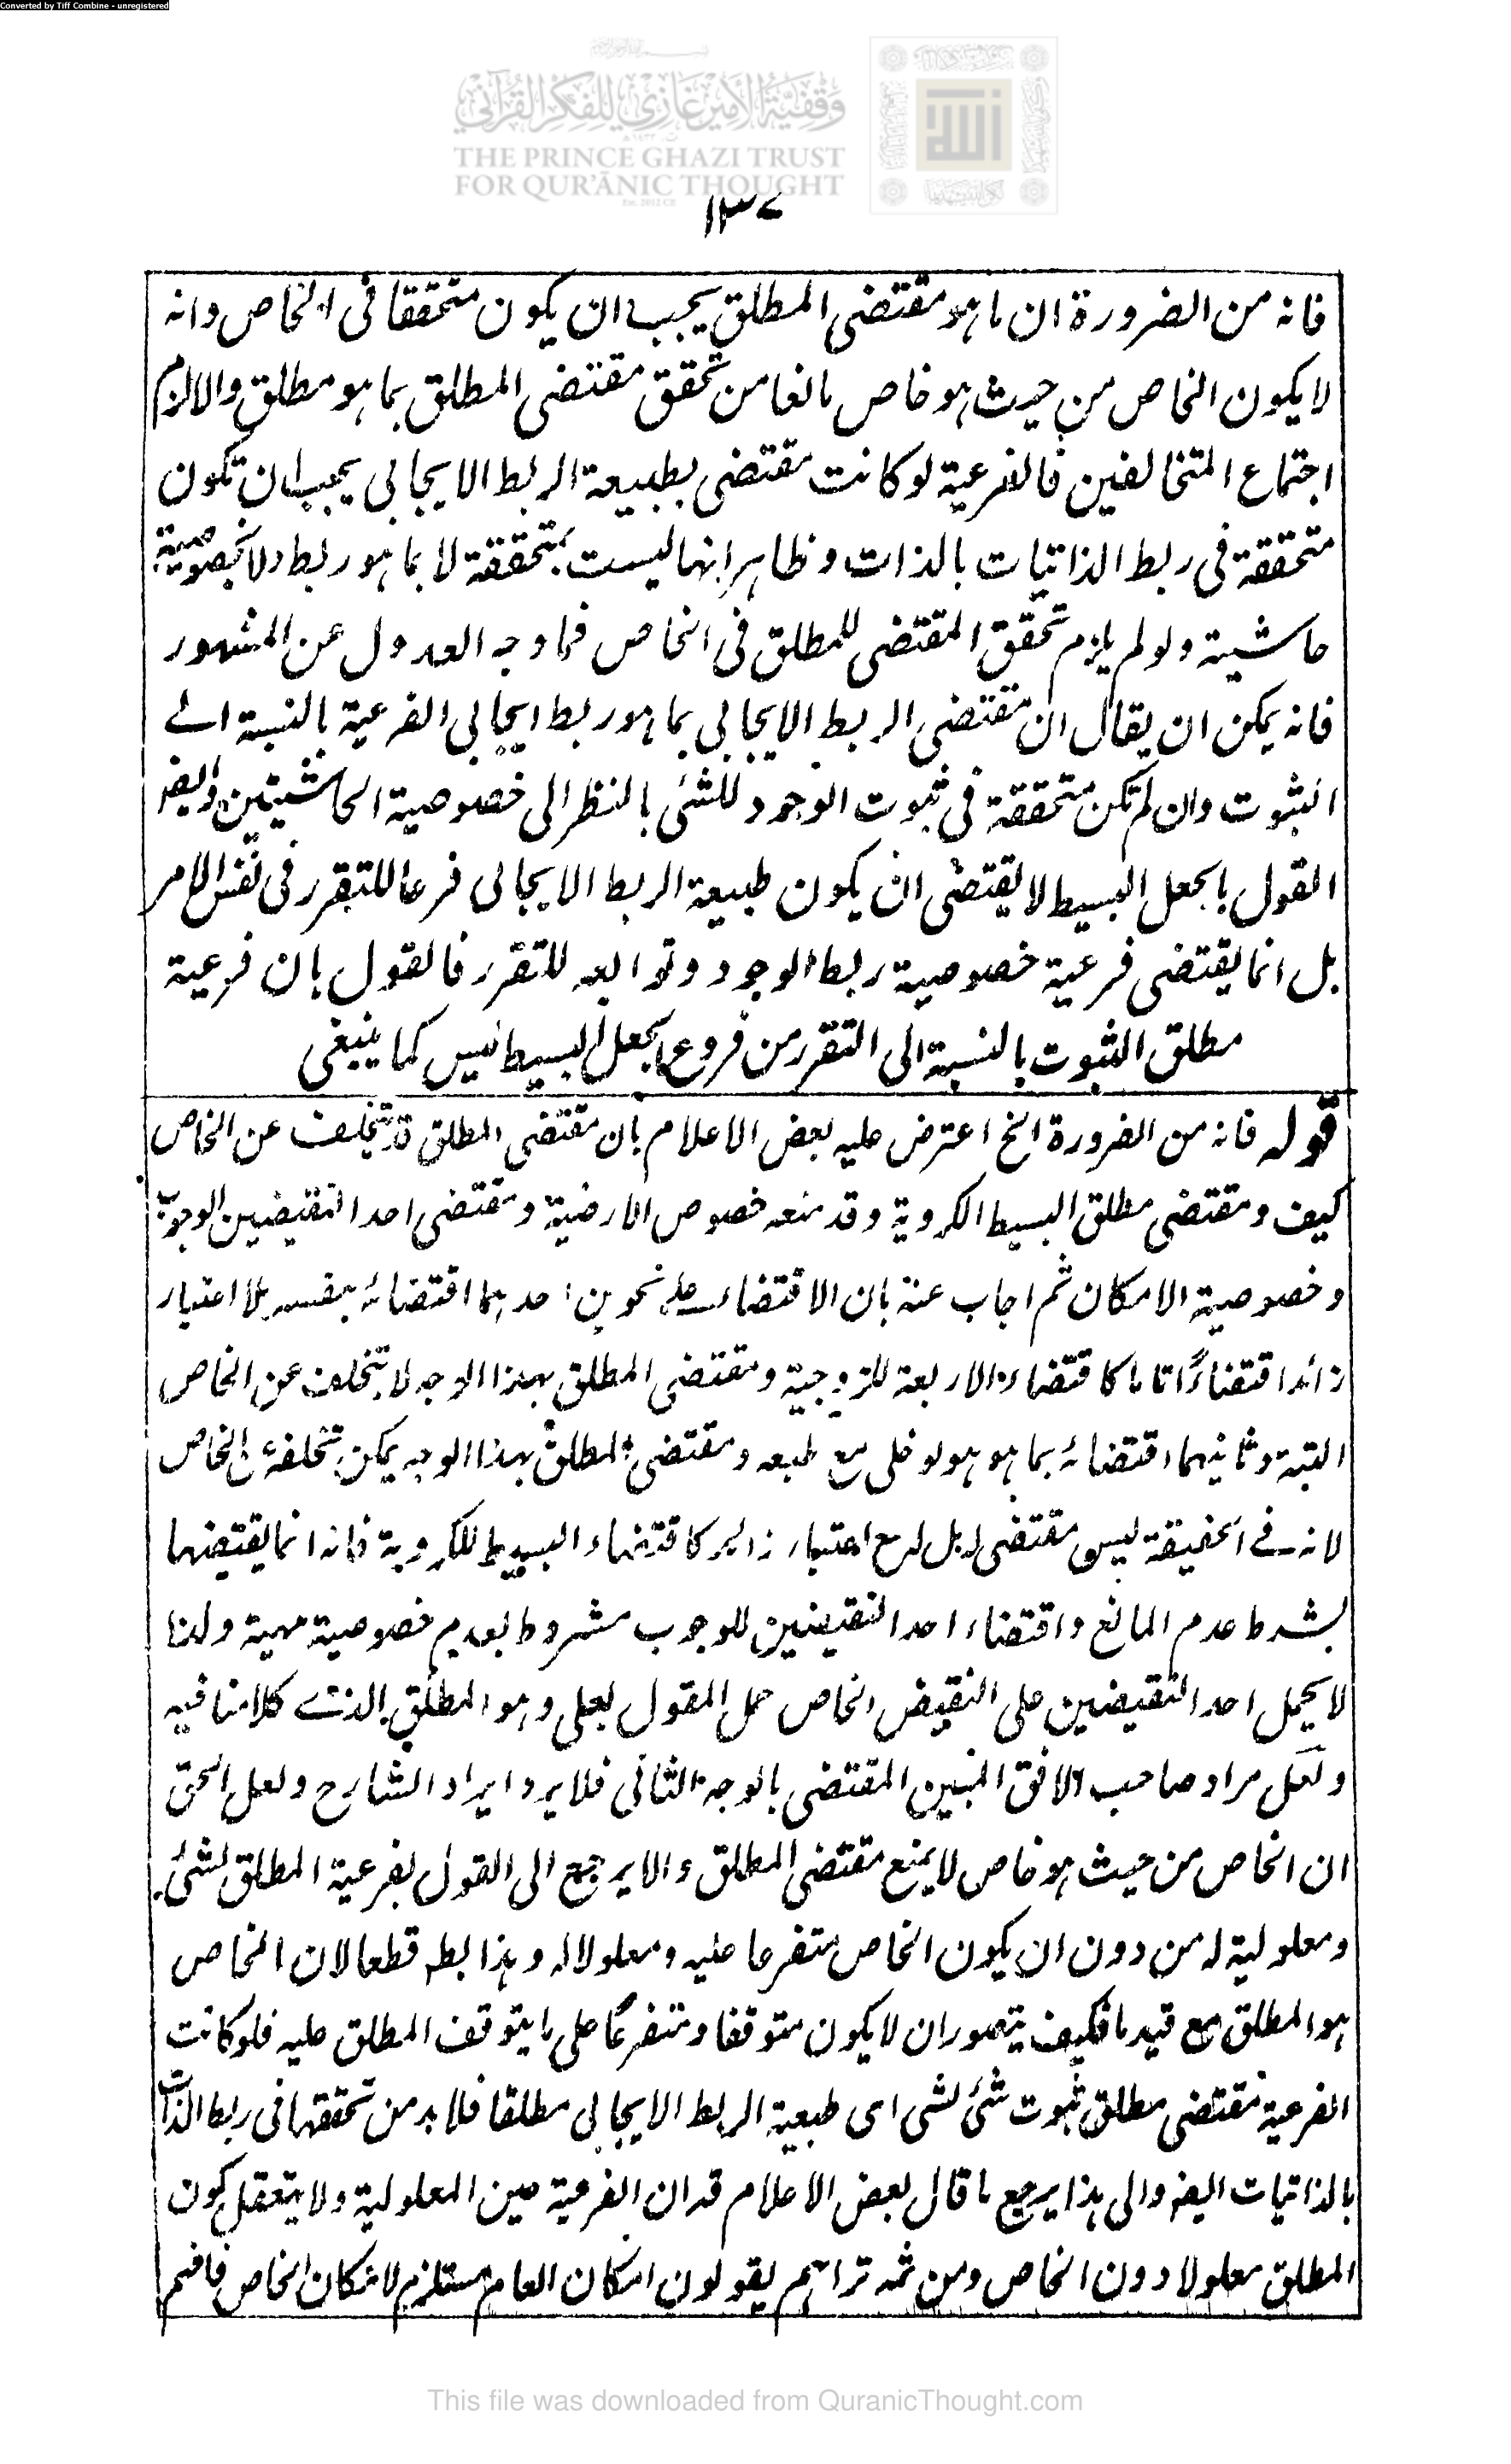 Converted by Tiff Combine - unregistered
وقفية الأمير غازي للفكر القرآني
THE PRINCE GHAZI TRUST
FOR QUR'ĀNIC THOUGHT
١٣٧
فانه من الضرورة ان ما هو مقتضى المطلق يجب ان يكون متحققا فى الخاص وانه
لا يكون الخاص من حيث هو خاص مانعا من تحقق مقتضى المطلق بما هو مطلق والا لزم
اجتماع المتخالفين فالفرعية لو كانت مقتضى بطبيعة الربط الايجابى يجب ان تكون
متحققة فى ربط الذاتيات بالذات وظاهر انها ليست بمتحققة لا بما هو ربط ولا بخصوصية
حاشية ولو لم يلزم تحقق المقتضى للمطلق فى الخاص فما وجه العدول عن المشهور
فانه يمكن ان يقال ان مقتضى الربط الايجابى بما هو ربط ايجابى الفرعية بالنسبة الے
الثبوت وان لم تكن متحققة فى ثبوت الوجود للشئ بالنظر الى خصوصية الحاشيتين وايضا
القول بالجعل البسيط لا يقتضى ان يكون طبيعة الربط الايجابى فرعا للتقرر فى نفس الامر
بل انما يقتضى فرعية خصوصية ربط الوجود وتوابعه للتقرر فالقول بان فرعية
مطلق الثبوت بالنسبة الى التقرر من فروع الجعل البسيط ليس كما ينبغى
قوله فانه من الضرورة الخ اعترض عليه بعض الاعلام بان مقتضى المطلق قد يتخلف عن الخاص
كيف ومقتضى مطلق البسيط الكروية وقد منعه خصوص الارضية ومقتضى احد النقيضين الوجوب
وخصوصية الامكان ثم اجاب عنه بان الاقتضاء على نحوين احدهما اقتضائه بنفسه بلا اعتبار
زائد اقتضاءً تاما كاقتضاء الاربعة للزوجية ومقتضى المطلق بهذا الوجه لا يتخلف عن الخاص
البتة وثانيهما اقتضائه بما هو هو لو خلى مع طبعه ومقتضى المطلق بهذا الوجه يمكن تخلفه عن الخاص
لانه فے الحقيقة ليس مقتضى له بل له مع اعتبار زائد كاقتضاء البسيط للكروية فانه انما يقتضيها
بشرط عدم المانع واقتضاء احد النقيضين للوجوب مشروط بعدم خصوصية مهية ولذا
لا يحمل احد النقيضين على النقيض الخاص حمل المقول بعلى وهو المطلق الذے كلامنا فيه
ولعل مراد صاحب الافق المبين المقتضى بالوجه الثانى فلا يرد ايراد الشارح ولعل الحق
ان الخاص من حيث هو خاص لا يمنع مقتضى المطلق والا يرجع الى القول بفرعية المطلق لشئ
ومعلولية له من دون ان يكون الخاص متفرعا عليه ومعلولا له وهذا بط قطعا لان الخاص
هو المطلق مع قيد ما فكيف يتصور ان لا يكون متوقفا ومتفرعًا على ما يتوقف المطلق عليه فلو كانت
الفرعية مقتضى مطلق ثبوت شئ لشى اى طبعية الربط الايجابى مطلقا فلا بد من تحققها فى ربط الذات
بالذاتيات ايضا والى هذا يرجع ما قال بعض الاعلام قد ان الفرعية عين المعلولية ولا يتعقل كون
المطلق معلولا دون الخاص ومن ثمه تراهم يقولون امكان العام مستلزم لامكان الخاص فافهم
This file was downloaded from QuranicThought.com